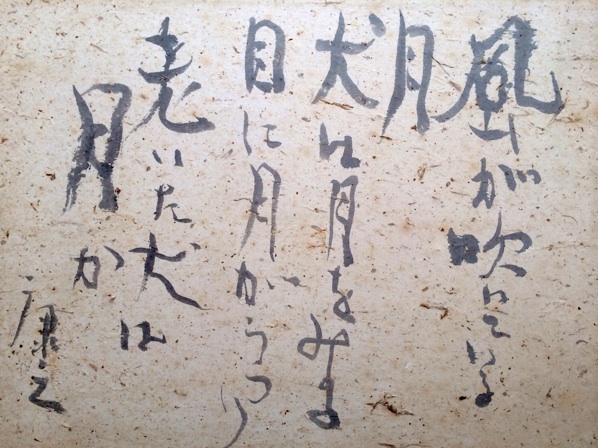 風が吹いている
月
犬は月をみる
目に月がうつり
老いた犬は
月か
康之